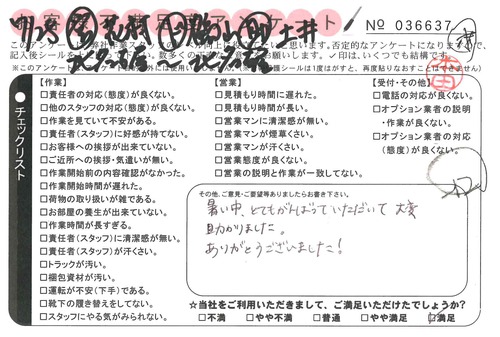 No 036637
【作業】
□責任者の対応(態度)が良くない。
□他のスタッフの対応(態度)が良くない。
□作業を見ていて不安がある。
□責任者(スタッフ)に好感が持てない。
□お客様への挨拶が出来ていない。
□ご近所への挨拶・気遣いが無い。
□作業開始前の内容確認がなかった。
□作業開始時間が遅れた。
□荷物の取り扱いが雑である。
□お部屋の養生が出来ていない。
□作業時間が長すぎる。
□責任者(スタッフ)に清潔感が無い。
□責任者(スタッフ)が汗くさい。
□トラックが汚い。
□梱包資材が汚い。
□運転が不安(下手)である。
□靴下の履き替えをしてない。
□スタッフにやる気がみられない。
【営業】
□見積もり時間に遅れた。
□見積もり時間が長い。
□営業マンに清潔感が無い。
□営業マンが煙草くさい。
□営業マンが汗くさい。
□営業態度が良くない。
□営業の説明と作業が一致してない。
【受付・その他】
□電話の対応が良くない。
□オプション業者の説明
・作業が良くない。
□オプション業者の対応
(態度)が良くない。
チェックリスト
その他、ご意見・ご要望等ありましたらお書き下さい。
暑い中、とてもがんばっていただいて大変
助かりました。
ありがとうございました!
☆当社をご利用いただきまして、ご満足いただけたでしょうか?
□不満 □やや不満 □普通 □やや満足 □満足